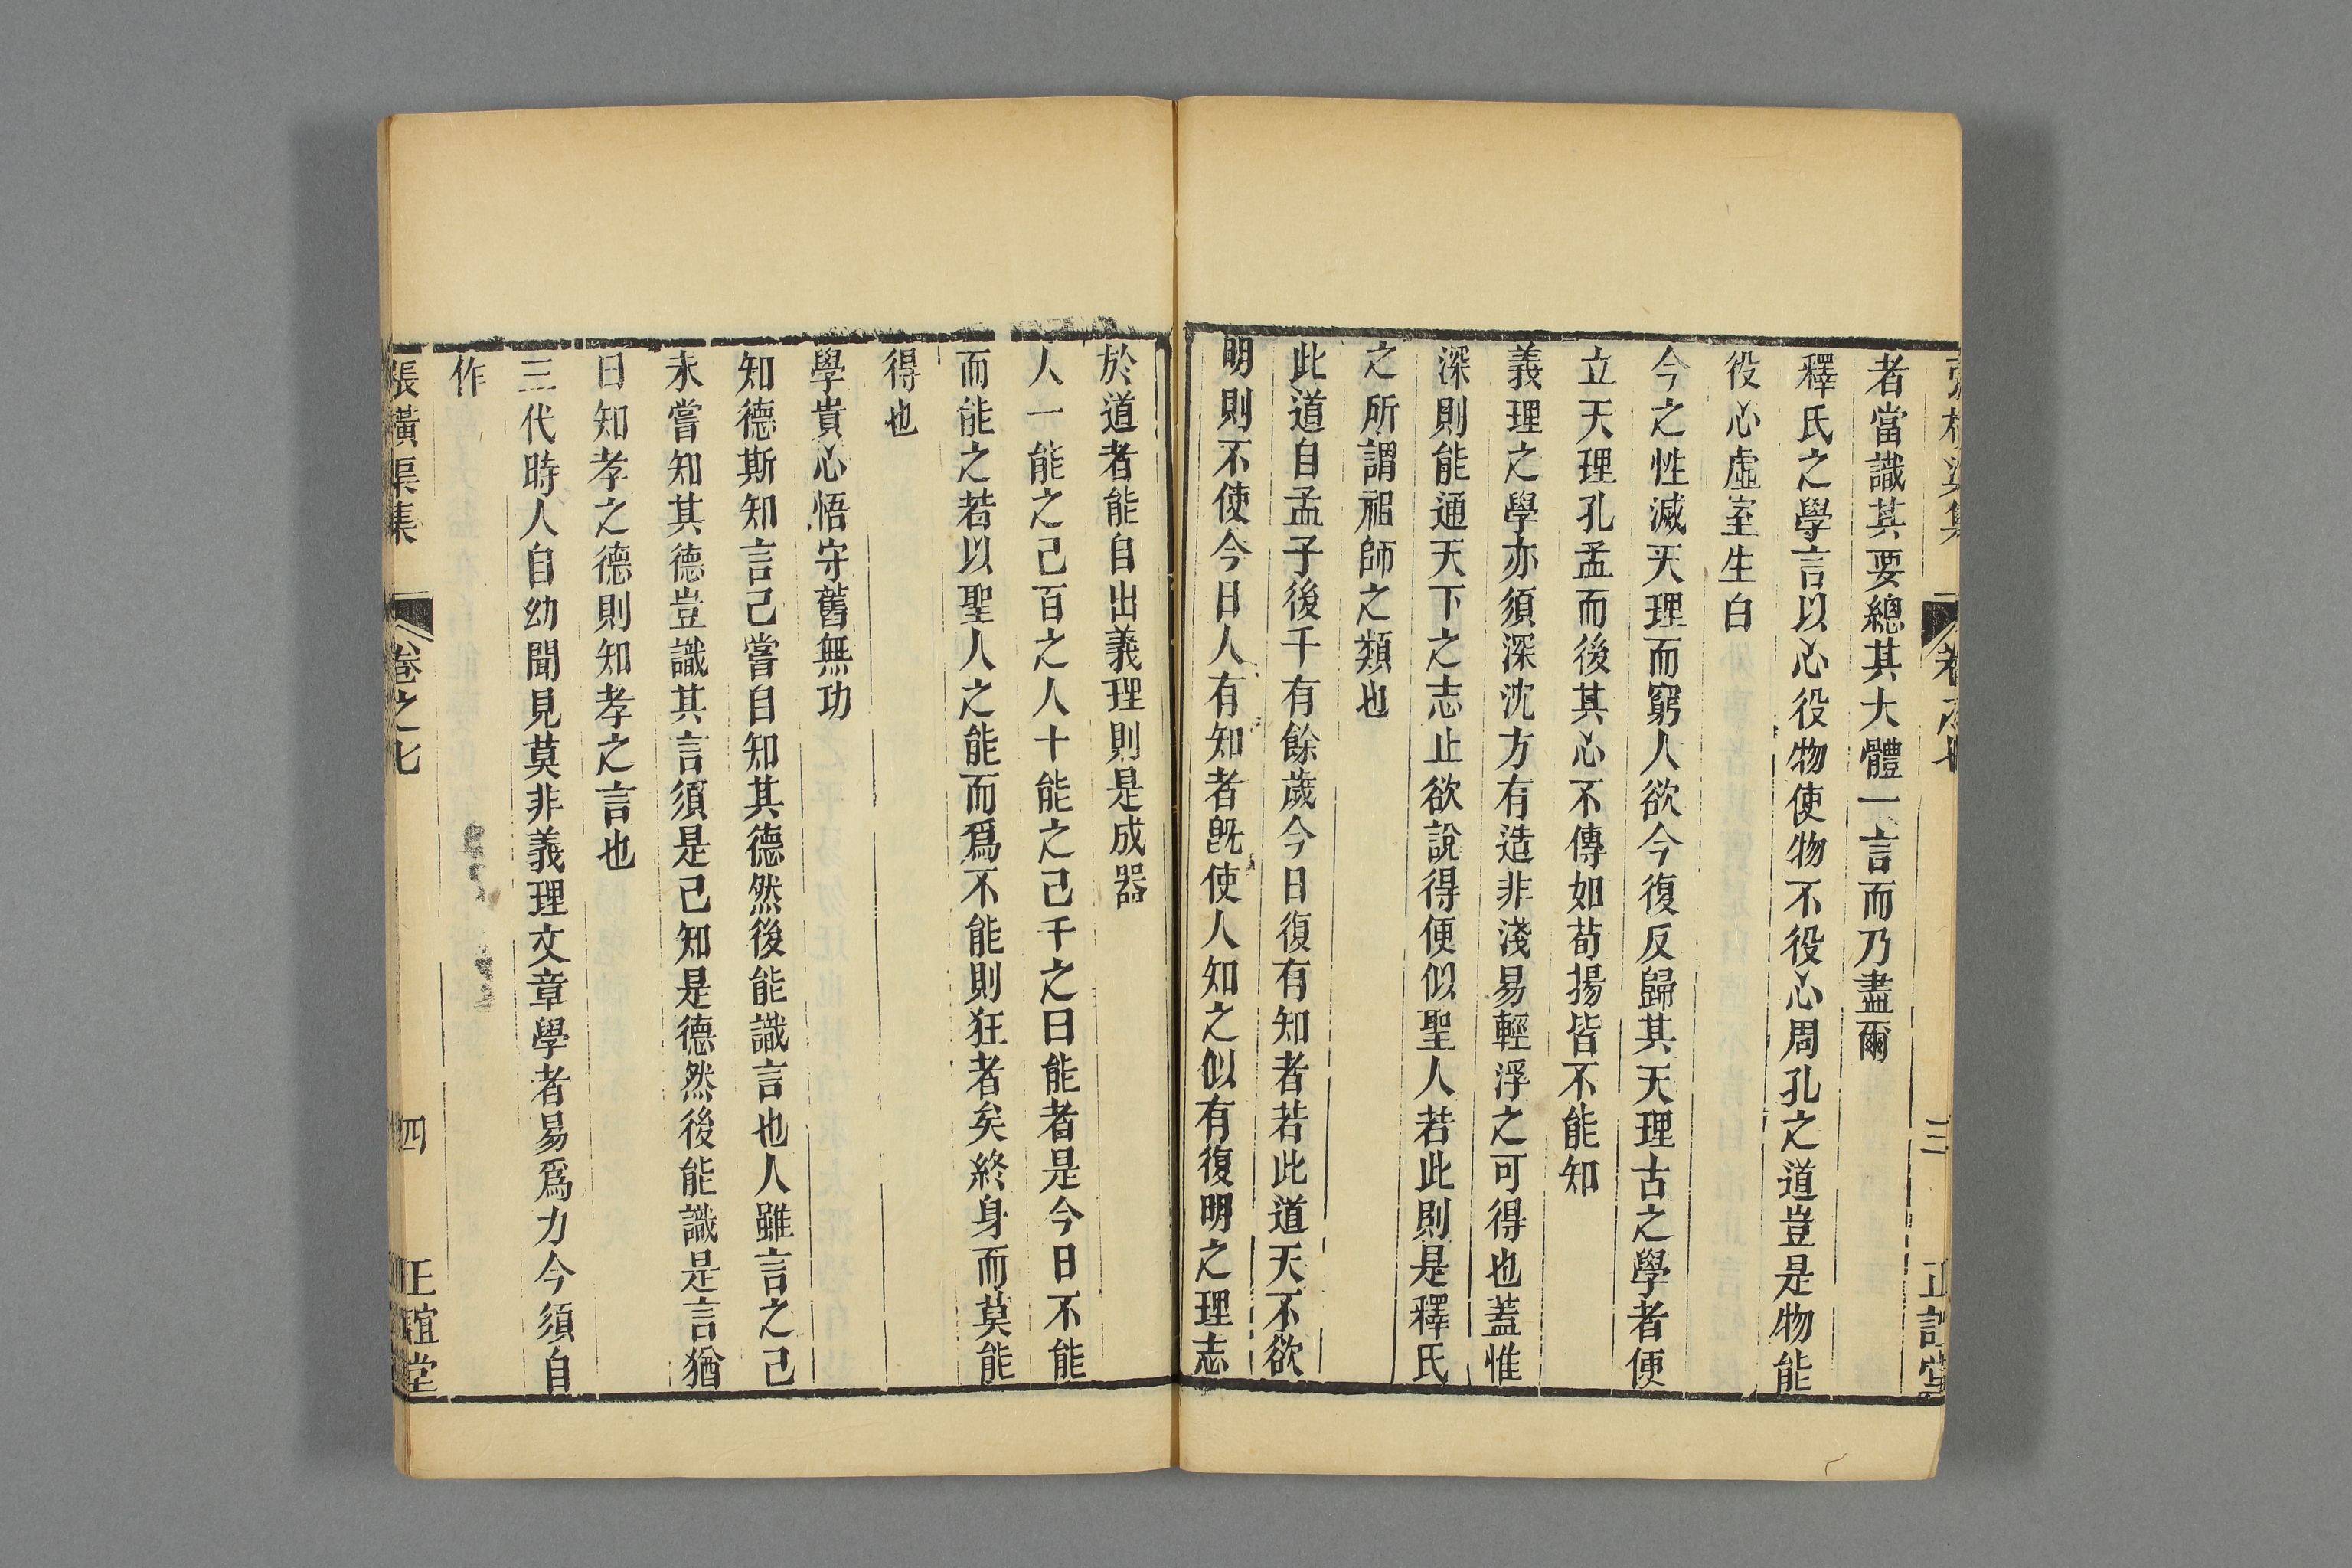 者當識其要總其大體一言而乃盡爾
釋氏之學言以心役物使物不役心周孔之道豈是物能
役心虛室生白
今之性滅天理而窮人欲今復反歸其天理古之學者便
立天理孔孟而後其心不傳如荀揚皆不能知
義理之學亦須深沈方有造非淺易輕浮之可得也蓋惟
深則能通天下之志止欲說得便似聖人若此則是釋氏
之所謂祖師之類也
此道自孟子後千有餘歲今日復有知者若此道天不欲
明則不使今日人有知者旣使人知之似有復明之理志
於道者能自出義理則是成器
人一能之己百之人十能之己千之曰能者是今日不能
而能之若以聖人之能而爲不能則狂者矣終身而莫能
得也
學貴心悟守舊無功
知德斯知言己嘗自知其德然後能識言也人雖言之己
未嘗知其德豈識其言須是己知是德然後能識是言猶
曰知孝之德則知孝之言也
三代時人自幼聞見莫非義理文章學者易爲力今須自
作
張橫渠集 卷之七 四 正誼堂